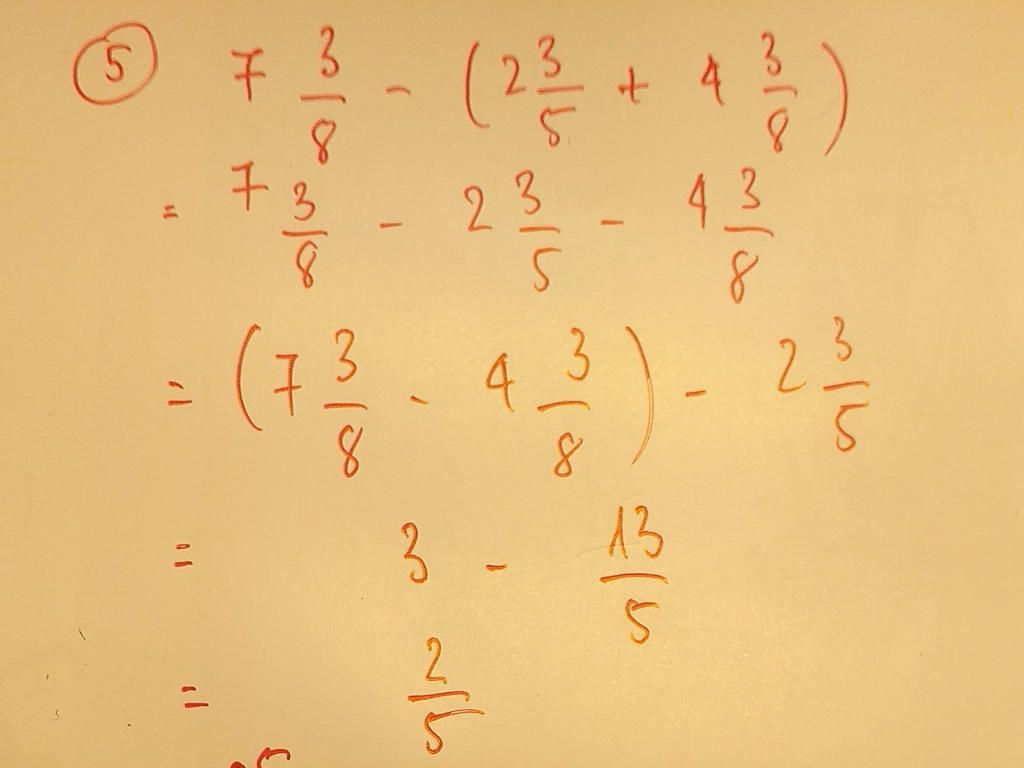 ⑤ 7 3/8 - (2 3/5 + 4 3/8)
= 7 3/8 - 2 3/5 - 4 3/8
= (7 3/8 - 4 3/8) - 2 3/5
= 3 - 13/5
= 2/5